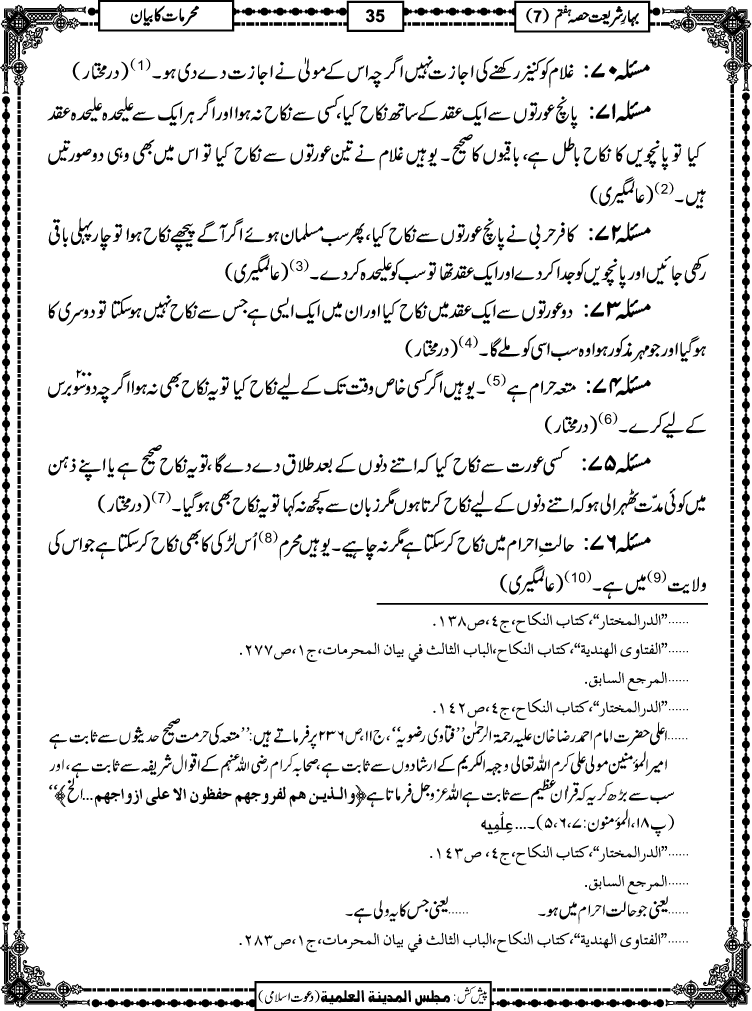 بہارِ شریعت حصہ ہفتم (7)
35
محرمات کا بیان
مسئلہ ۷۰: غلام کو کنیز رکھنے کی اجازت نہیں اگرچہ اس کے مولیٰ نے اجازت دے دی ہو۔(1) (درمختار)
مسئلہ ۷۱: پانچ عورتوں سے ایک عقد کے ساتھ نکاح کیا، کسی سے نکاح نہ ہوا اور اگر ہر ایک سے علیحدہ علیحدہ عقد
کیا تو پانچویں کا نکاح باطل ہے، باقیوں کا صحیح۔ یوہیں غلام نے تین عورتوں سے نکاح کیا تو اس میں بھی وہی دو صورتیں
ہیں۔(2) (عالمگیری)
مسئلہ ۷۲: کافر حربی نے پانچ عورتوں سے نکاح کیا، پھر سب مسلمان ہوئے اگر آگے پیچھے نکاح ہوا تو چار پہلی باقی
رکھی جائیں اور پانچویں کو جدا کر دے اور ایک عقد تھا تو سب کو علیحدہ کر دے۔(3) (عالمگیری)
مسئلہ ۷۳: دو عورتوں سے ایک عقد میں نکاح کیا اور ان میں ایک ایسی ہے جس سے نکاح نہیں ہوسکتا تو دوسری کا
ہوگیا اور جو مہر مذکور ہوا وہ سب اسی کو ملے گا۔(4) (درمختار)
مسئلہ ۷۴: متعہ حرام ہے(5)۔ یوہیں اگر کسی خاص وقت تک کے لیے نکاح کیا تو یہ نکاح بھی نہ ہوا اگرچہ دو سو ۲۰۰ برس
کے لیے کرے۔(6) (درمختار)
مسئلہ ۷۵: کسی عورت سے نکاح کیا کہ اتنے دنوں کے بعد طلاق دے دے گا، تو یہ نکاح صحیح ہے یا اپنے ذہن
میں کوئی مدّت ٹھہرالی ہو کہ اتنے دنوں کے لیے نکاح کرتا ہوں مگر زبان سے کچھ نہ کہا تو یہ نکاح بھی ہوگیا۔(7) (درمختار)
مسئلہ ۷۶: حالتِ احرام میں نکاح کرسکتا ہے مگر نہ چاہیے۔ یوہیں محرم(8) اُس لڑکی کا بھی نکاح کرسکتا ہے جو اس کی
ولایت(9) میں ہے۔(10) (عالمگیری)
......"الدرالمختار"، کتاب النکاح، ج٤، ص١٣٨.
......"الفتاوی الھندیة"، کتاب النکاح، الباب الثالث في بیان المحرمات، ج١، ص٢٧٧.
......المرجع السابق.
......"الدرالمختار"، کتاب النکاح، ج٤، ص١٤٢.
......اعلی حضرت امام احمد رضا خان علیہ رحمۃ الرحمٰن ''فتاوی رضویہ''، ج۱۱، ص۲۳۶ پر فرماتے ہیں: ''متعہ کی حرمت صحیح حدیثوں سے ثابت ہے
امیر المؤمنین مولی علی کرم اللہ تعالی وجہہ الکریم کے ارشادوں سے ثابت ہے، صحابہ کرام رضی اللہ عنہم کے اقوال شریفہ سے ثابت ہے، اور
سب سے بڑھ کر یہ کہ قراٰن عظیم سے ثابت ہے اللہ عزوجل فرماتا ہے ﴿والـذیـن ھم لفروجھم حفظون الا علی ازواجھم ...الخ﴾''
(پ۱۸، المؤمنون: ۵،۶،۷)۔...عِلْمِیه
......"الدرالمختار"، کتاب النکاح، ج٤، ص١٤٣.
......المرجع السابق.
......یعنی جو حالت احرام میں ہو۔ ......یعنی جس کا یہ ولی ہے۔
......"الفتاوی الھندیة"، کتاب النکاح، الباب الثالث في بیان المحرمات، ج١، ص٢٨٣.
پیش کش: مجلس المدینة العلمیة (دعوت اسلامی)